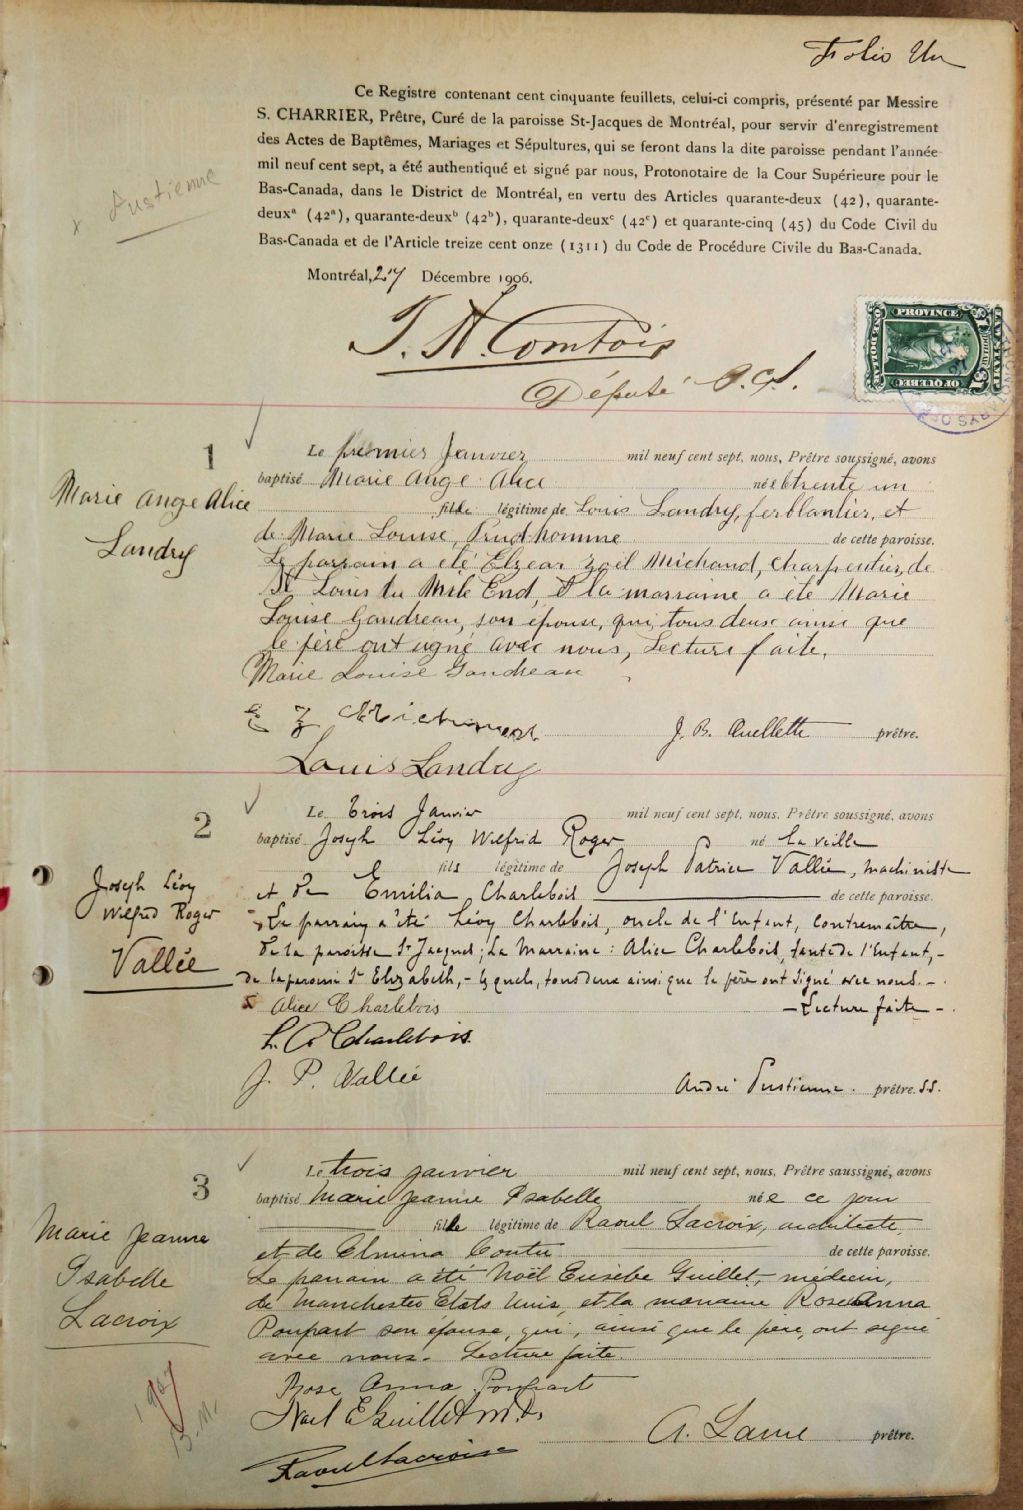 Folio Un
Ce Registre contenant cent cinquante feuillets, celui-ci compris, présenté par Messire
S. CHARRIER, Prêtre, Curé de la paroisse St-Jacques de Montréal, pour servir d'enregistrement
des Actes de Baptêmes, Mariages et Sépultures, qui se feront dans la dite paroisse pendant l'année
mil neuf cent sept, a été authentiqué et signé par nous, Protonotaire de la Cour Supérieure pour le
Bas-Canada, dans le District de Montréal, en vertu des Articles quarante-deux (42), quarante-
deuxᵃ (42ᵃ), quarante-deuxᵇ (42ᵇ), quarante-deuxᶜ (42ᶜ) et quarante-cinq (45) du Code Civil du
Bas-Canada et de l'Article treize cent onze (1311) du Code de Procédure Civile du Bas-Canada.
Montréal, 27 Décembre 1906.
PROVINCE
OF QUEBEC
ONE DOLLAR
LAW STAMP
$1
Député P.C.S.
1
Marie Ange Alice
Landry
Le premier Janvier mil neuf cent sept, nous, Prêtre soussigné, avons
baptisé Marie Ange Alice née le trente un
fille légitime de Louis Landry, ferblantier, et
de Marie Louise Prudhomme de cette paroisse.
Le parrain a été Elzéar Zoël Michaud, charpentier, de
St Louis du Mile End, et la marraine a été Marie
Louise Gaudreau, son épouse, qui, tous deux ainsi que
le père ont signé avec nous, Lecture faite.
Marie Louise Gaudreau
J. B. Ouellette prêtre.
Louis Landry
2
Joseph Léoy
Wilfrid Roger
Vallée
Le trois Janvier mil neuf cent sept, nous, Prêtre soussigné, avons
baptisé Joseph Léoy Wilfrid Roger né la veille
fils légitime de Joseph Patrice Vallée, machiniste
et de Emilia Charlebois de cette paroisse.
Le parrain a été Léoy Charlebois, oncle de l'Enfant, Contremaître,
de la paroisse St Jacques; La Marraine: Alice Charlebois, tante de l'Enfant,-
de la paroisse Ste Elizabeth,- lesquels, tous deux ainsi que le père ont signé avec nous.-
Alice Charlebois - Lecture faite -
L. A Charlebois.
J. P. Vallée
André Pustienne. prêtre. SS.
3
Marie Jeanne
Isabelle
Lacroix
Le trois janvier mil neuf cent sept, nous, Prêtre saussigné, avons
baptisé Marie Jeanne Isabelle née ce jour
fille légitime de Raoul Lacroix, architecte
et de Elmina Coutu de cette paroisse.
Le parrain a été Noël Eusèbe Guillet, médecin,
de Manchester Etats Unis, et la marraine Rose Anna
Poupart son épouse, qui, ainsi que le père, ont signé
avec nous. Lecture faite.
Rose Anna Poupart
Noël E Guillet M.D.
Raoul Lacroix
prêtre.
1907